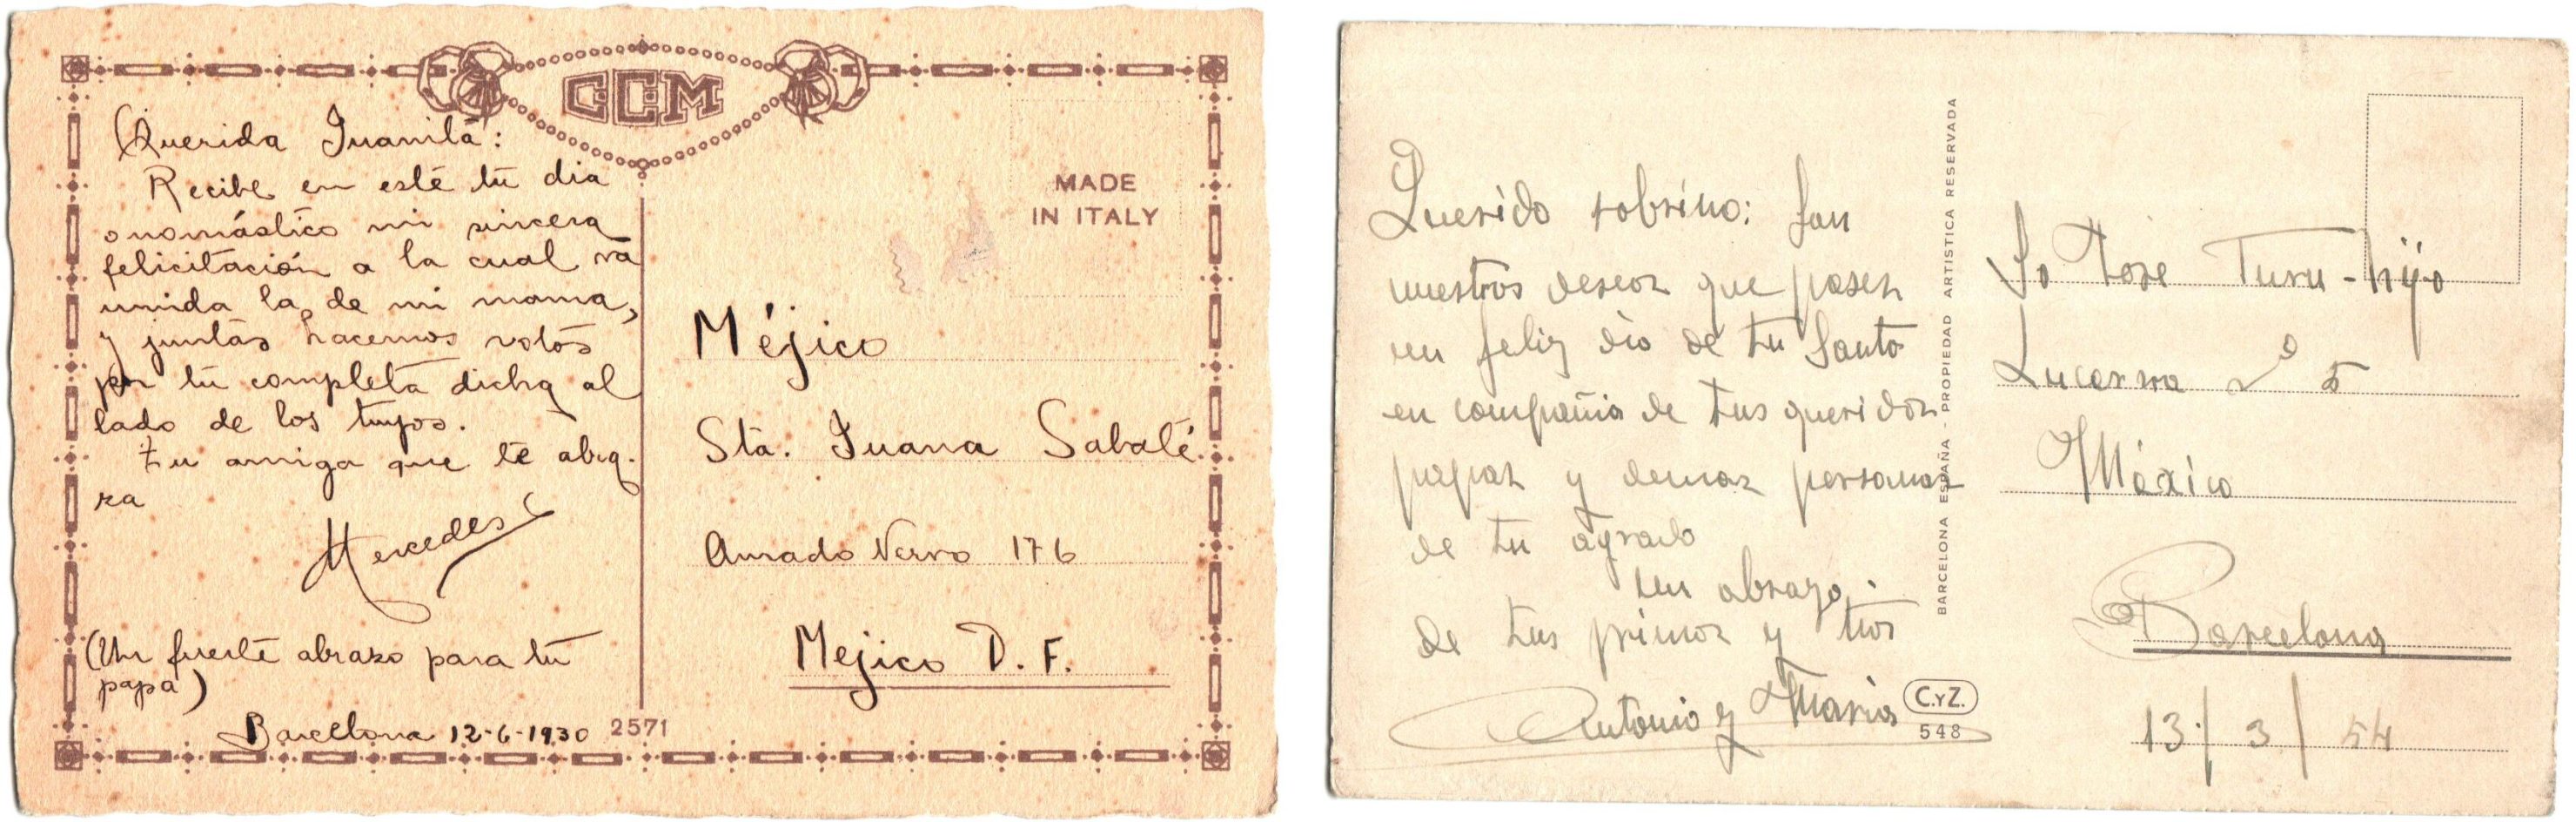 CCM
Querida Juanita:
Recibe en este tu dia
onomástico mi sincera
felicitación a la cual va
unida la de mi mama,
y juntas hacemos votos
por tu completa dicha al
lado de los tuyos.
Tu amiga que te abra-
za
Mercedes
(Un fuerte abrazo para tu
papa)
Barcelona 12-6-1930
2571
MADE
IN ITALY
Méjico
Sta. Juana Sabaté
Amado Nervo 176
Mejico D. F.
Querido sobrino: Son
nuestros deseos que pases
un feliz dia de tu Santo
en compañia de tus queridos
papas y demas personas
de tu agrado
un abrazo
de tus primos y tios
Antonio y Maria
BARCELONA ESPAÑA - PROPIEDAD ARTISTICA RESERVADA
C.YZ.
548
Sr Jose Turu - hijo
Lucerna nº 5
México
Barcelona
13/3/54